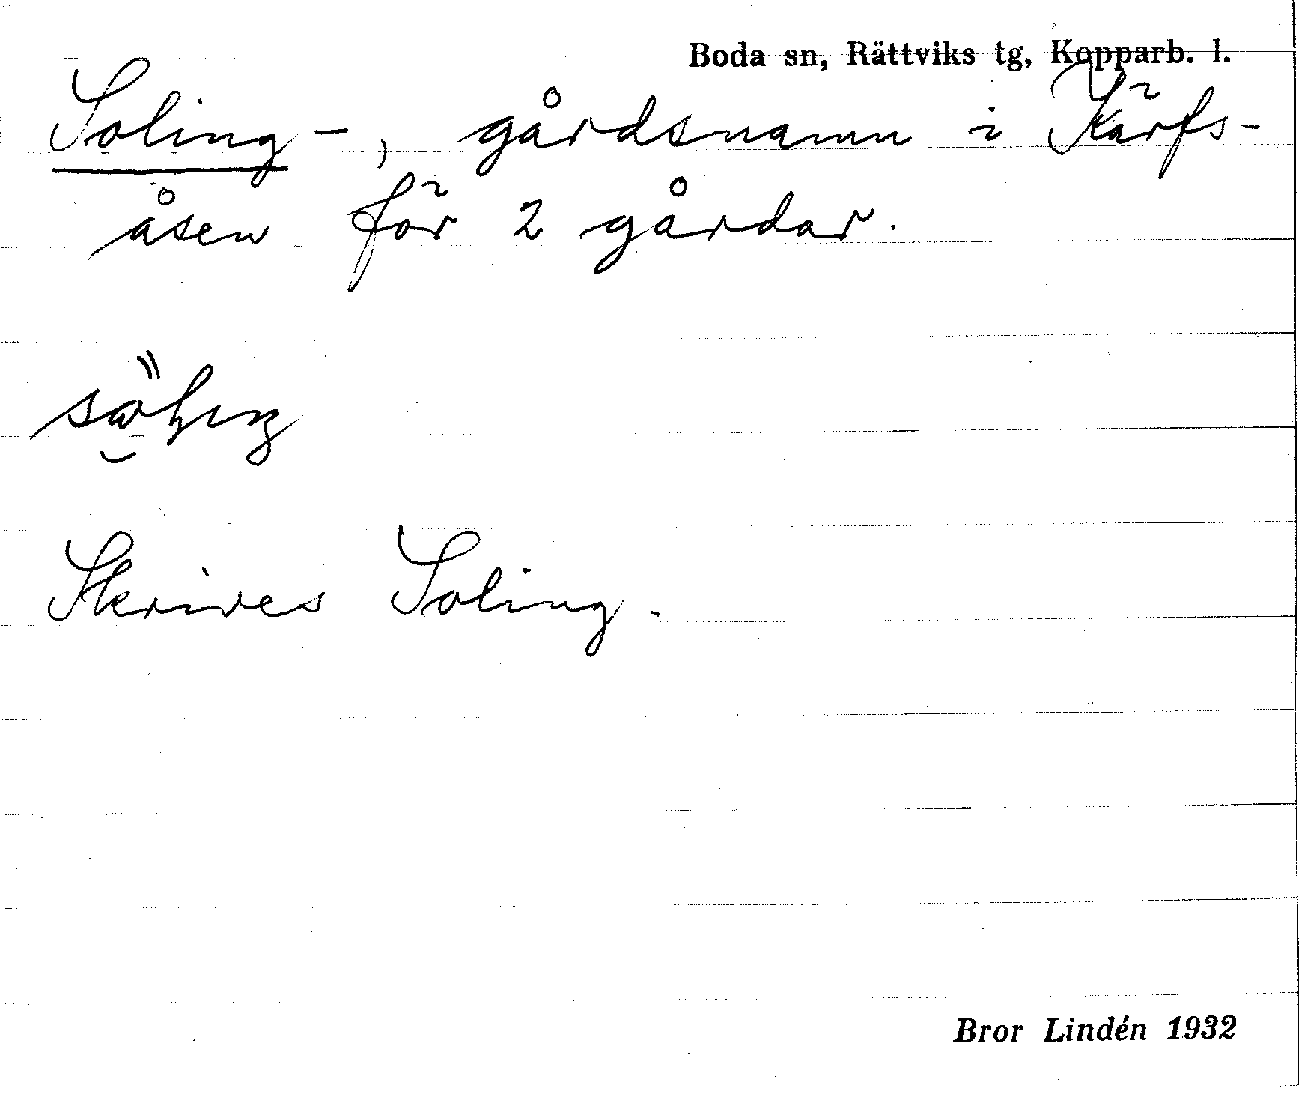 Boda sn, Rättviks tg, Kopparb. l.
Soling -, gårdsnamn i Kärfs-
åsen för 2 gårdar.
Skrives Soling.
Bror Lindén 1932